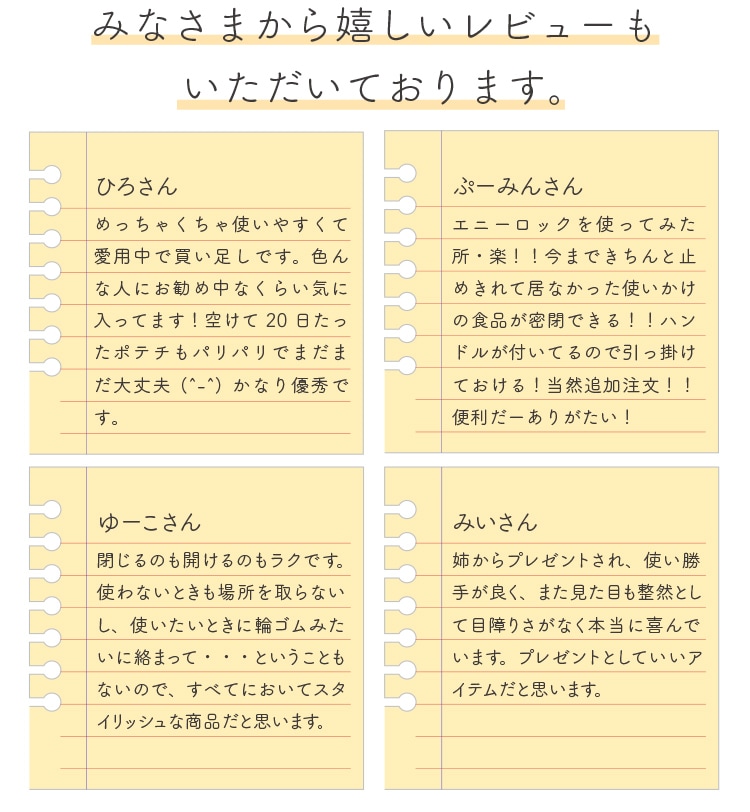 みなさまから嬉しいレビューも
いただいております。
ひろさん
めっちゃくちゃ使いやすくて
愛用中で買い足しです。色ん
な人にお勧め中なくらい気に
入ってます！空けて 20 日たっ
たポテチもパリパリでまだま
だ大丈夫 (^-^) かなり優秀で
す。
ぷーみんさん
エニーロックを使ってみた
所・楽！！今まできちんと止
めきれて居なかった使いかけ
の食品が密閉できる！！ハン
ドルが付いてるので引っ掛け
ておける！当然追加注文！！
便利だーありがたい！
ゆーこさん
閉じるのも開けるのもラクです。
使わないときも場所を取らない
し、使いたいときに輪ゴムみた
いに絡まって・・・ということも
ないので、すべてにおいてスタ
イリッシュな商品だと思います。
みいさん
姉からプレゼントされ、使い勝
手が良く、また見た目も整然とし
て目障りさがなく本当に喜んで
います。プレゼントとしていいア
イテムだと思います。